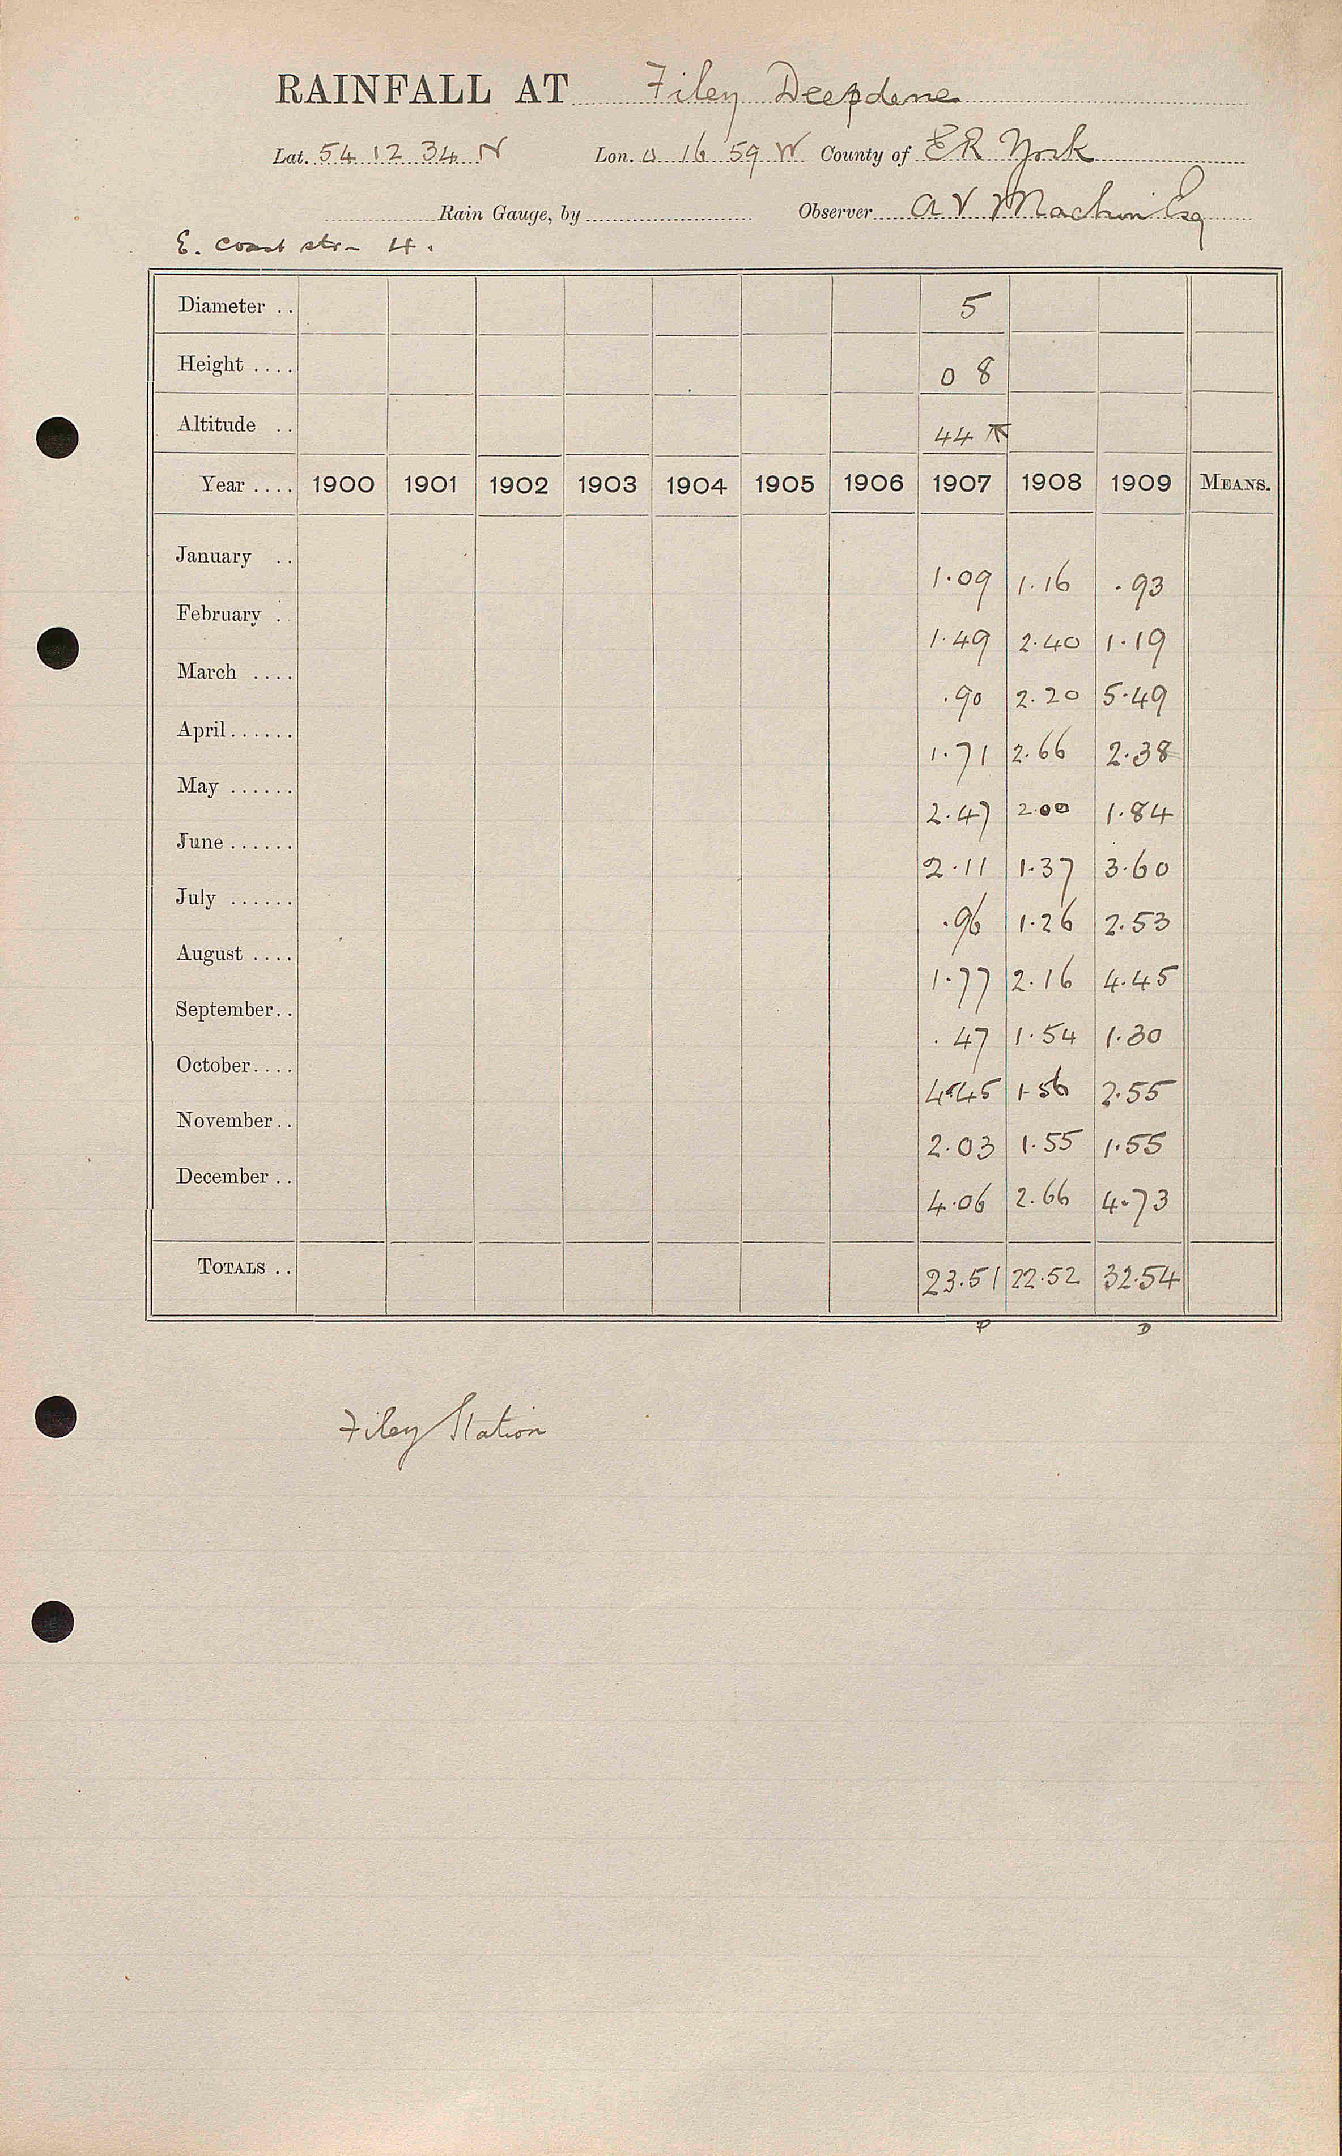 RAINFALL AT Filey Deepdene
Lat. 54 12 34 N Lon. 0 16 59 W County of ER York
Rain Gauge, by Observer A V Machin Esq
E. coast str- 4.
Diameter .. 5
Height .... 0 8
Altitude .. 44
Year .... 1900 1901 1902 1903 1904 1905 1906 1907 1908 1909 MEANS.
January .. 1.09 1.16 .93
February . 1.49 2.40 1.19
March .... .90 2.20 5.49
April...... 1.71 2.66 2.38
May ...... 2.47 2.00 1.84
June ...... 2.11 1.37 3.60
July ...... .96 1.26 2.53
August .... 1.77 2.16 4.45
September.. .47 1.54 1.30
October.... 4.45 1.56 2.55
November.. 2.03 1.55 1.55
December.. 4.06 2.66 4.73
TOTALS .. 23.51 22.52 32.54
P D
Filey Station